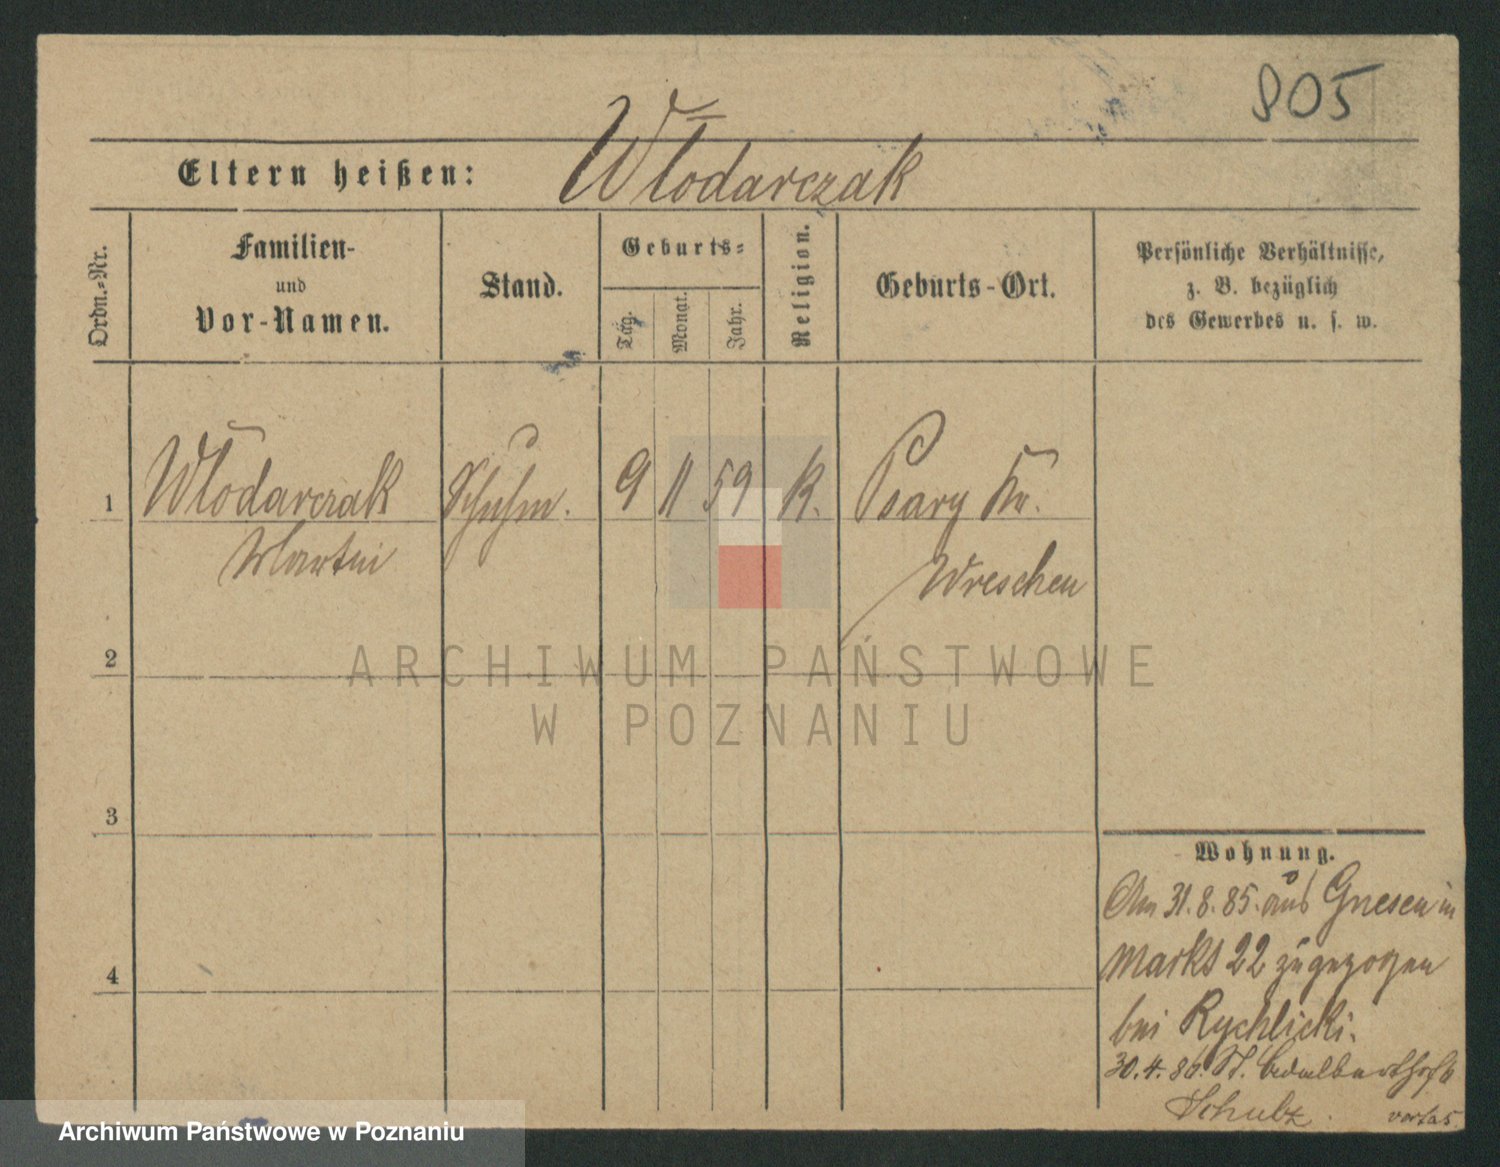 805
Eltern heißen: Włodarczak
Ordn.-Nr.
Familien-
und
Vor-Namen.
Stand.
Geburts-
Tag.
Monat.
Jahr.
Religion.
Geburts-Ort.
Persönliche Verhältnisse,
z. B. bezüglich
des Gewerbes u. s. w.
1 Włodarczak Schuhm. 9 11 59 K. Psary Kr.
Martin
Wreschen
2
ARCHIWUM PAŃSTWOWE
W POZNANIU
3
4
Wohnung.
Am 31.8.85. aus Gnesen in
Markt 22 zugezogen
bei Rychlicki.
30.4.86. St.
Schulz.
Archiwum Państwowe w Poznaniu